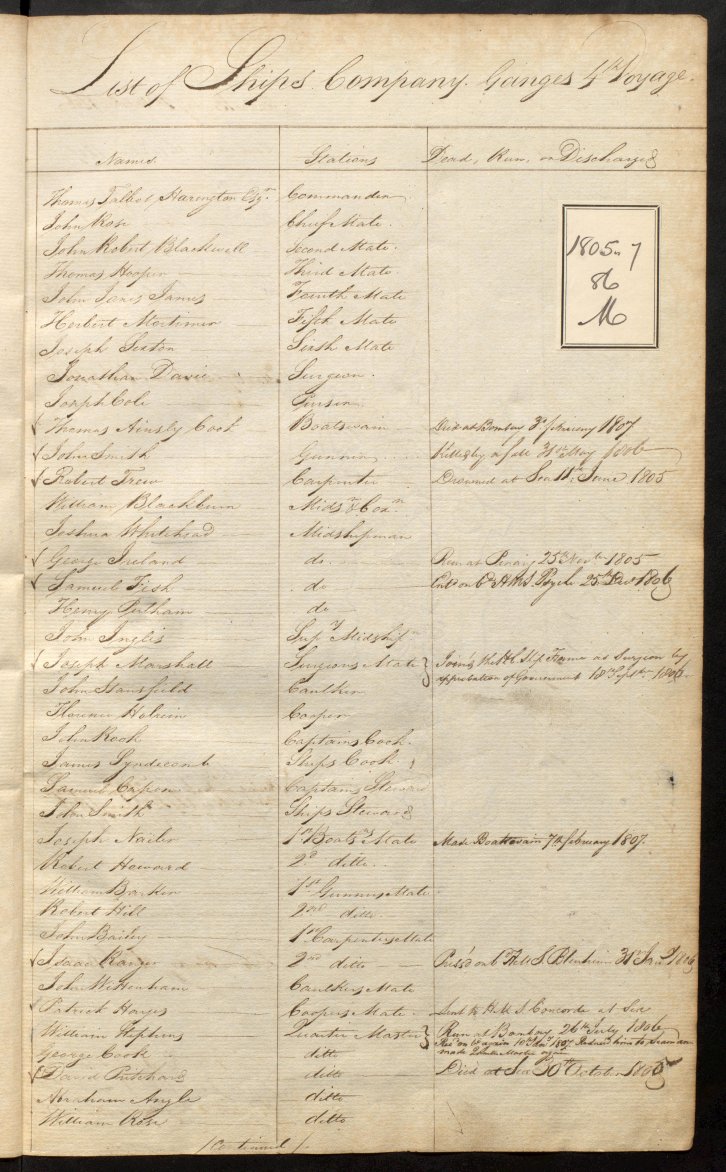 List of Ships Company. Ganges 4th Voyage.
Names Stations Dead, Run, or Discharged
1805-7
M
Thomas Talbot Harington Esqr. Commander
John Rose Chief Mate
John Robert Blackwell Second Mate
Thomas Hooper Third Mate
John James Fourth Mate
Herbert Mortimer Fifth Mate
Joseph Sexton Sixth Mate
Jonathan Davis Surgeon
Joseph Cole Purser
Thomas Ainsly Cook Boatswain Died at Bombay February 1807
John Smith Gunner Killed by a fall 31st May 1806
Robert Trew Carpenter Drowned at Sea 11th June 1805
William Blackburn Midsn & Coxn
Joshua Whitehead Midshipman
George Ireland do. Run at Penang 25th Novr 1805
Samuel Fish do 1806
Henry Pelham do
John Inglis Supy Midshipn
Joseph Marshall Surgeons Mate Join'd the as Surgeon by
approbation of Government 18th Septr 1806
John Stansfield Caulker
Florence Cooper
John Rook Captains Cook
James Lyndecomb Ships Cook
Samuel Capon Captains Steward
John Smith Ships Steward
Joseph Nailer 1st Boatsns Mate Made Boatswain 7th february 1807.
Robert Howard 2d ditto
William Barker 1st Gunners Mate
Robert Hill 2nd ditto
John Bailey 1st Carpenters Mate
Isaac 2nd ditto Press'd on bd H M S Blenheim 31st
John Wittenham Caulkers Mate
Patrick Hayes Coopers Mate Sent to H.M.S. Concorde at Sea
William Hopkins Quarter Master Run at Bombay 26th July 1806
again 10th 1807 him to Seaman
made Quarter Master
George Cook ditto
David Pritchard ditto Died at Sea 30th October 1805
Abraham Angle ditto
William Rose ditto
/Continued/